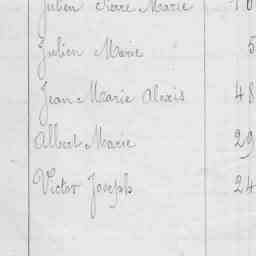 Julien Pierre Marie
Julien Marie 5
Jean Marie Alexis 48
Albert Marie 29
Victor Joseph 24